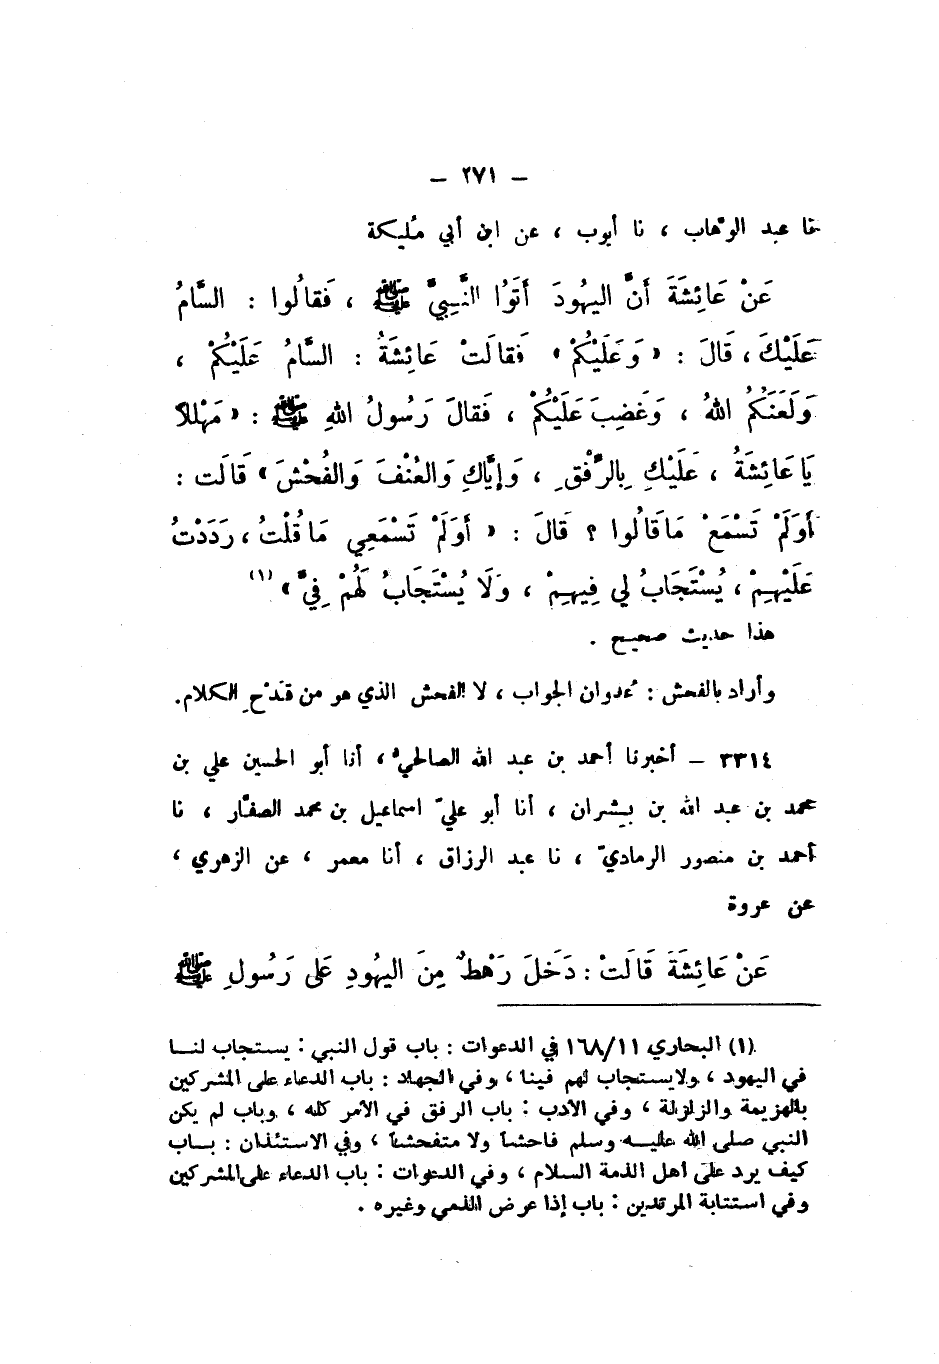 – ٢٧١ –
نا عبد الوهاب ، نا أيوب ، عن ابن أبي مُليكة
عَنْ عَائِشَةَ أَنَّ اليهُودَ أَتَوُا النَّبِيَّ ﷺ ، فَقالُوا : السَّامُ
عَلَيْكَ ، قَالَ : « وَعَلَيْكُمْ » فَقالَتْ عَائِشَةُ : السَّامُ عَلَيْكُمْ ،
وَلَعَنَكُمُ اللهُ ، وَغَضِبَ عَلَيْكُمْ ، فَقالَ رَسُولُ اللهِ ﷺ : « مَهْلاً
يَا عَائِشَةُ ، عَلَيْكِ بِالرِّفْقِ ، وَإِيَّاكِ وَالعُنْفَ وَالفُحْشَ » قَالَت :
أَوَلَمْ تَسْمَعْ مَا قَالُوا ؟ قَالَ : « أَوَلَمْ تَسْمَعِي مَا قُلْتُ ، رَدَدْتُ
عَلَيْهِمْ ، يُسْتَجَابُ لي فِيهِمْ ، وَلَا يُسْتَجَابُ لَهُمْ فِيَّ » (١)
هذا حديث صحيح .
وأراد بالفحش : عُدوان الجواب ، لا الفحش الذي هو من قَدْحِ الكلام.
٣٣١٤ – أخبرنا أحمد بن عبد الله الصالحيُّ ، أنا أبو الحسين علي بن
محمد بن عبد الله بن بِشران ، أنا أبو عليّ اسماعيل بن محمد الصفَّار ، نا
أحمد بن منصور الرماديّ ، نا عبد الرزاق ، أنا معمر ، عن الزهري ،
عن عروة
عَنْ عَائِشَةَ قَالَتْ : دَخَلَ رَهْطٌ مِنَ اليهُودِ عَلى رَسُولِ ﷺ
(١) البخاري ١٦٨/١١ في الدعوات : باب قول النبي : يستجاب لنا
في اليهود ، ولا يستجاب لهم فينا ، وفي الجهاد : باب الدعاء على المشركين
بالهزيمة والزلزلة ، وفي الأدب : باب الرفق في الأمر كله ، وباب لم يكن
النبي صلى الله عليه وسلم فاحشاً ولا متفحشاً ، وفي الاستئذان : باب
كيف يرد على أهل الذمة السلام ، وفي الدعوات : باب الدعاء على المشركين
وفي استتابة المرتدين : باب إذا عرض الذمي وغيره .